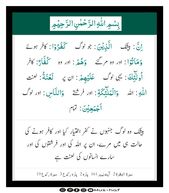 بِسْمِ اللّٰهِ الرَّحْمٰنِ الرَّحِيْمِ
اِنَّ: بیشک الَّذِيْنَ: جو لوگ كَفَرُوْا: کافر ہوئے
وَمَاتُوْا: اور وہ مرگئے وَھُمْ: اور وہ كُفَّارٌ: کافر
اُولٰٓئِكَ: یہی لوگ عَلَيْهِمْ: ان پر لَعْنَةُ: لعنت
اللّٰهِ: اللہ وَالْمَلٰٓئِكَةِ: اور فرشتے وَالنَّاسِ: اور لوگ
اَجْمَعِيْنَ: تمام
بیشک وہ لوگ جنہوں نے کفر اختیار کیا اور کافر ہونے کی
حالت ہی میں مرے، ان پر اللہ کی اور فرشتوں کی اور
سارے انسانوں کی لعنت ہے